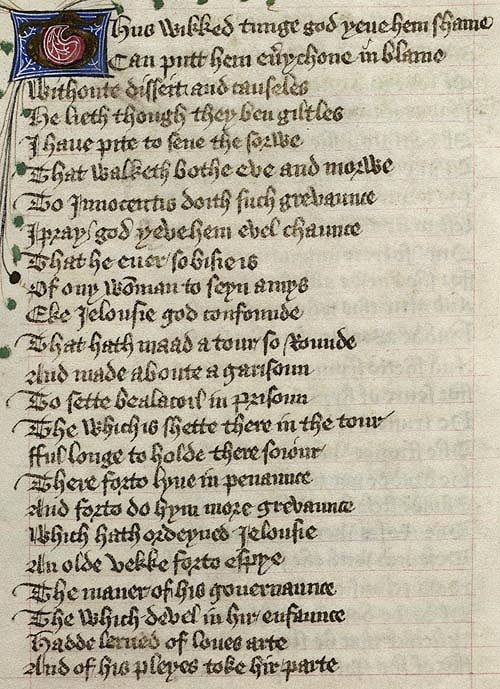 Thus wikked tunge god yeve hem shame
Can putt hem eu̾ychone in blame
Withoute disseit and causeles
He lieth though they ben giltles
I haue pite to sene the sorwe
That walketh bothe eve and morwe
To Innocentis doith such grevaunce
I pray god yeve hem evel chaunce
That he euer so bisie is
Of ony wōman to seyn amys
Eke Jelousie god confounde
That hath maad a tour so Rounde
And made aboute a garisoun
To sette bealacoil in prisoun
The which is shette there in the tour
fful longe to holde there soiour
There forto lyue in penaunce
And forto do hym more grevaunce
Which hath ordeyned Jelousie
An olde vekke forto espye
The maner of his gouernaunce
The which devel in hir enfaunce
Hadde lerned of loues arte
And of his pleyes toke hir parte